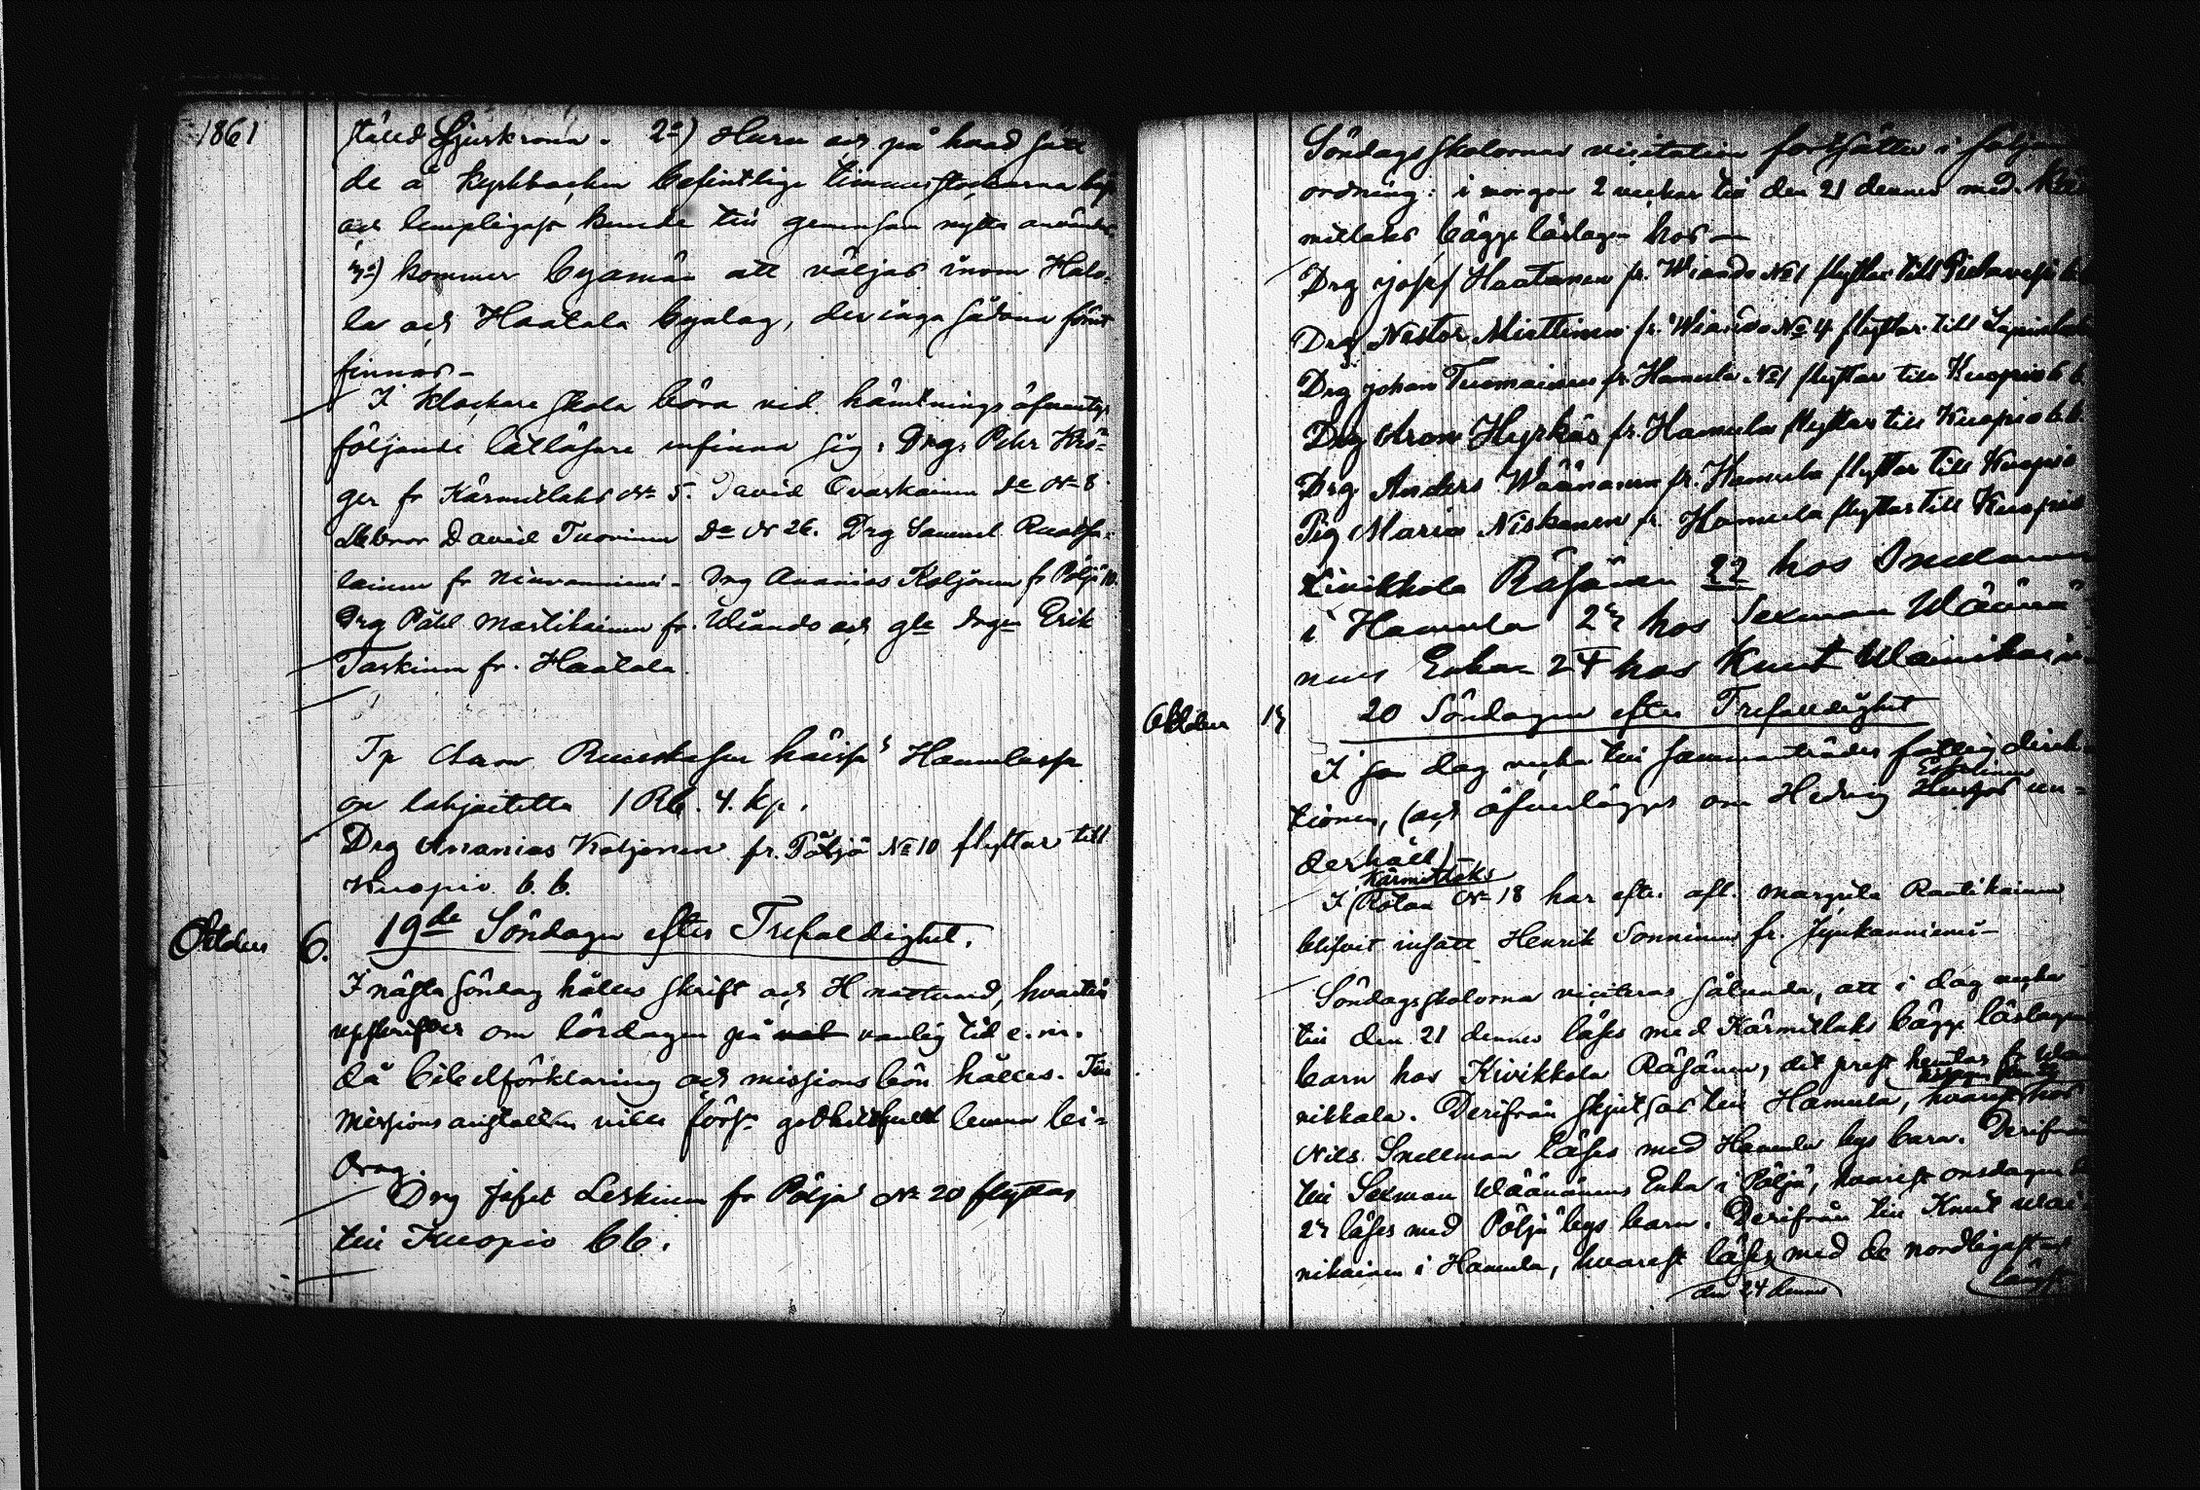 1861
ställd Ljuskrona. 2o) Huru och på hvad sätt
de å Kyrkbacken befintlige timmerstockarna
och lempligast kunde till gemensam nytta användas
3o) kommer byamän att väljas inom Hako-
la och Haatala byalag, der inga sådana förut
finnas –
I Klockare skola böra vid hämtnings äfventyr
följande lätläsare infinna sig: Drgr Petr Krö-
ger fr Kärmetlaks No 5. David Ovaskainen do No 8
David Tuovinen do No 26. Drg Samuel
lainen fr Ninvanniemi – Drg Ananias Koljonen fr Pöljä 10.
Drg Påhl Martikainen fr. Wiando och gle drgn Erik
Taskinen fr. Haatala.
Tp Aaron Ruuskasen häissä Hamulassa
on lahjoitettu 1 Rb. 4. kp.
Drg Ananias Koljonen fr. Pöljä No 10 flyttar till
Kuopio b. b.
October 6. 19de Söndagen efter Trefaldighet.
I nästa söndag hålles skrift och H nattvard, hvartill
uppskrifves om lördagen på vanlig tid e. m.
då bibelförklaring och missions bön hålles. Till
missions anstalten ville först godhetsfullt lemna bi-
drag.
Drg Jafet Leskinen fr Pöljä No 20 flyttar
till Kuopio bb.
Söndagsskolornas visitation fortsättes i följande
ordning: i morgon 2 veckor till den 21 dennes med
mitlaks bägge läslagen hos –
Drg Josef Haatanen fr. Wiando No 1 flyttar till Pielavesi
Drg Nestor Miettinen fr. Wiando No 4 flyttar till Lapinlaks
Drg Johan Tuomainen fr Hamula No 1 flyttar till Kuopio b b.
Drg Aron Hyrkäs fr. Hamula flyttar till Kuopio b.b.
Drg Anders Wäänänen fr. Hamula flyttar till Kuopio
Pig Maria Niskanen fr. Hamula flyttar till Kuopio
Kivikkola Räsänen 22 hos Snellman
i Hamula 23 hos Sexman Wäänä-
nens Enka 24 hos Knut Wainikain
October 13 20 Söndagen efter Trefaldighet
I dag vecka till sammanträder fattig direk-
tionen, (och öfverlägges om Hedvig un-
derhåll) –
Kärmitlaks
I Rotan No 18 har efter afl. Margreta Rautikainen
blifvit insatt Henrik Sonninen fr. Jynkänniemi –
Söndagsskolorna visiteras sålunda, att i dag vecka
till den 21 dennes läses med Kärmitlaks bägge läslagen
barn hos Kivikkola Räsänen, dit prest hemtas fr
nikkala. Derifrån skjutsas till Hamula, hvarest hos
Nils Snellman läses med Hamula bys barn. Derifrån
till Sexman Wäänänens Enka i Pöljä, hvarest onsdagen
23 läses med Pöljä bys barn. Derifrån till Knut Wai-
nikainen i Hamula, hvarest läses med de nordligaste
den 24 dennes